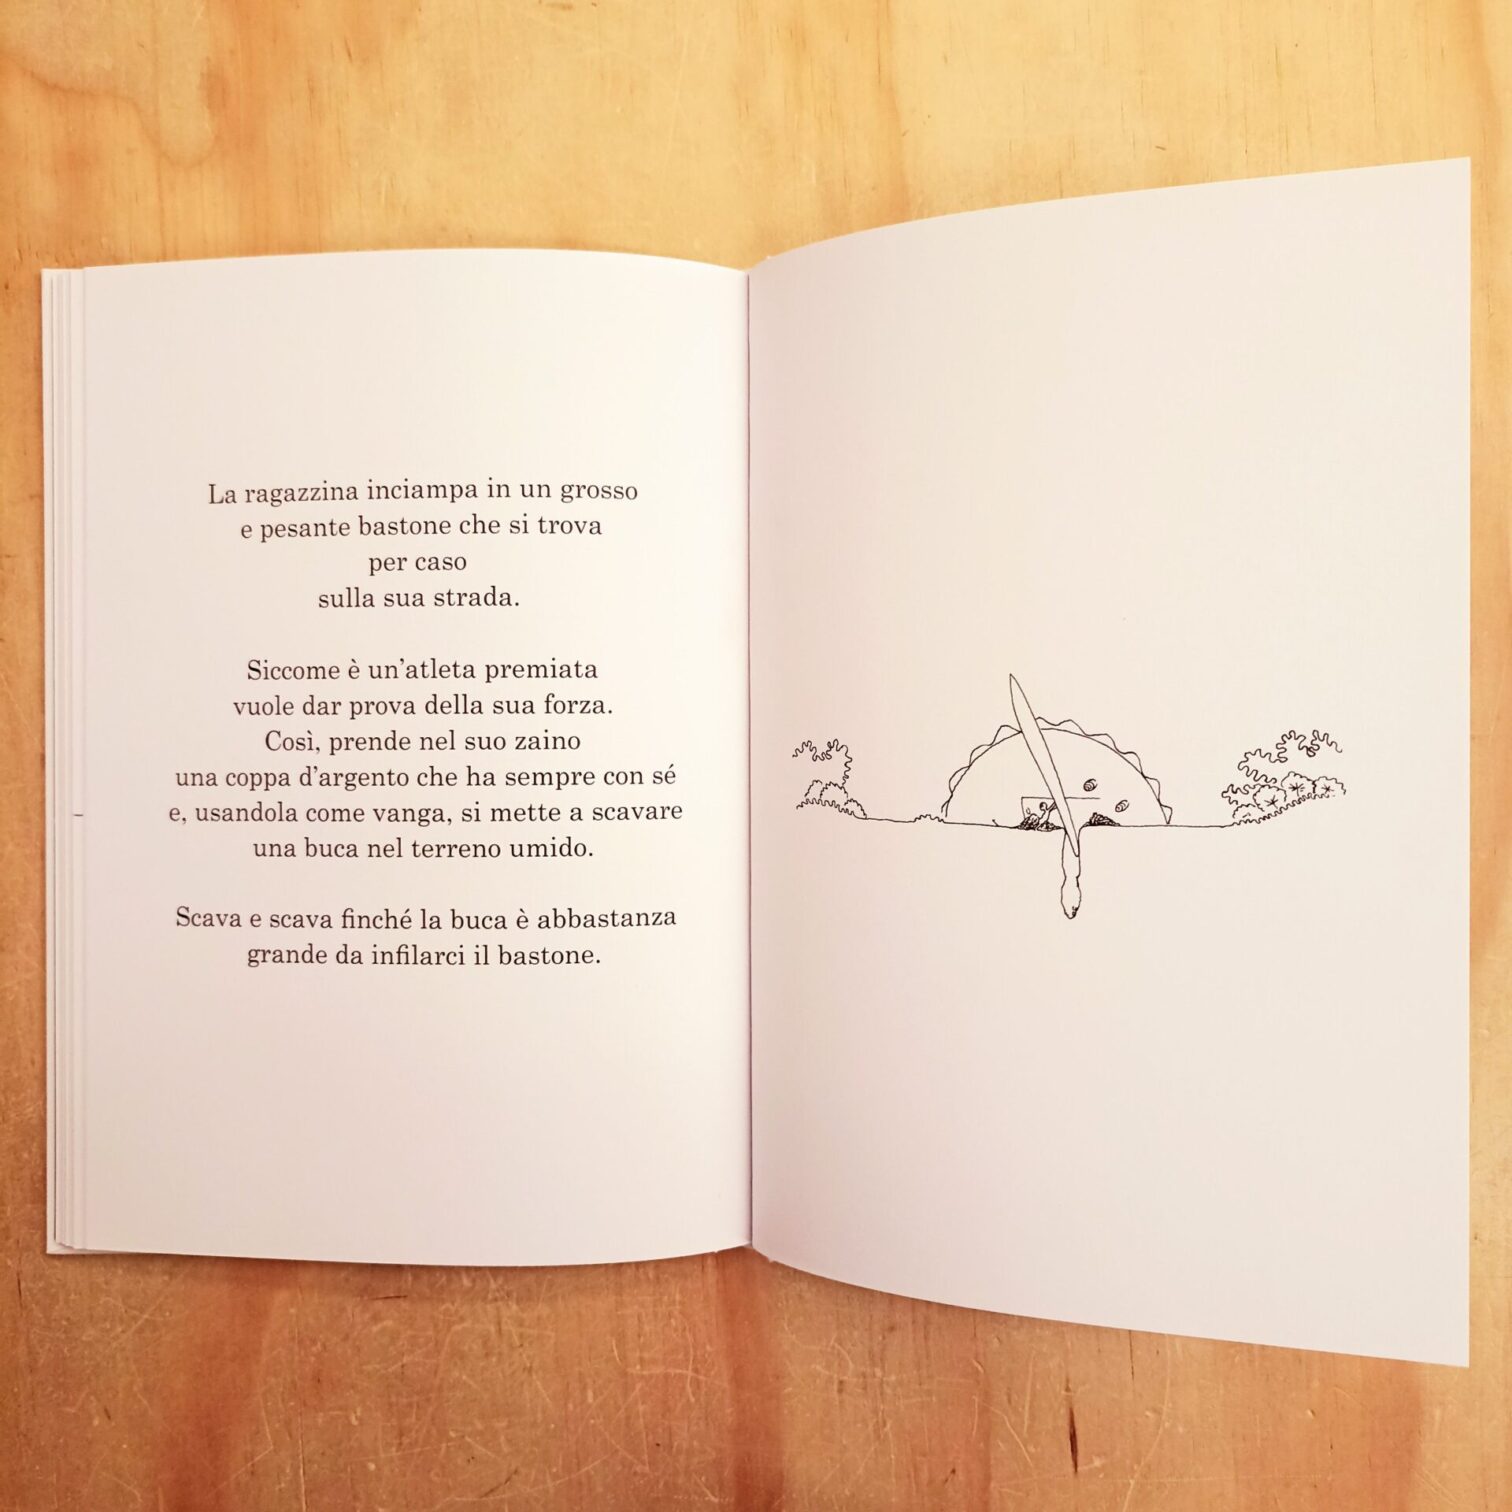 La ragazzina inciampa in un grosso
e pesante bastone che si trova
per caso
sulla sua strada.
Siccome è un’atleta premiata
vuole dar prova della sua forza.
Così, prende nel suo zaino
una coppa d’argento che ha sempre con sé
e, usandola come vanga, si mette a scavare
una buca nel terreno umido.
Scava e scava finché la buca è abbastanza
grande da infilarci il bastone.